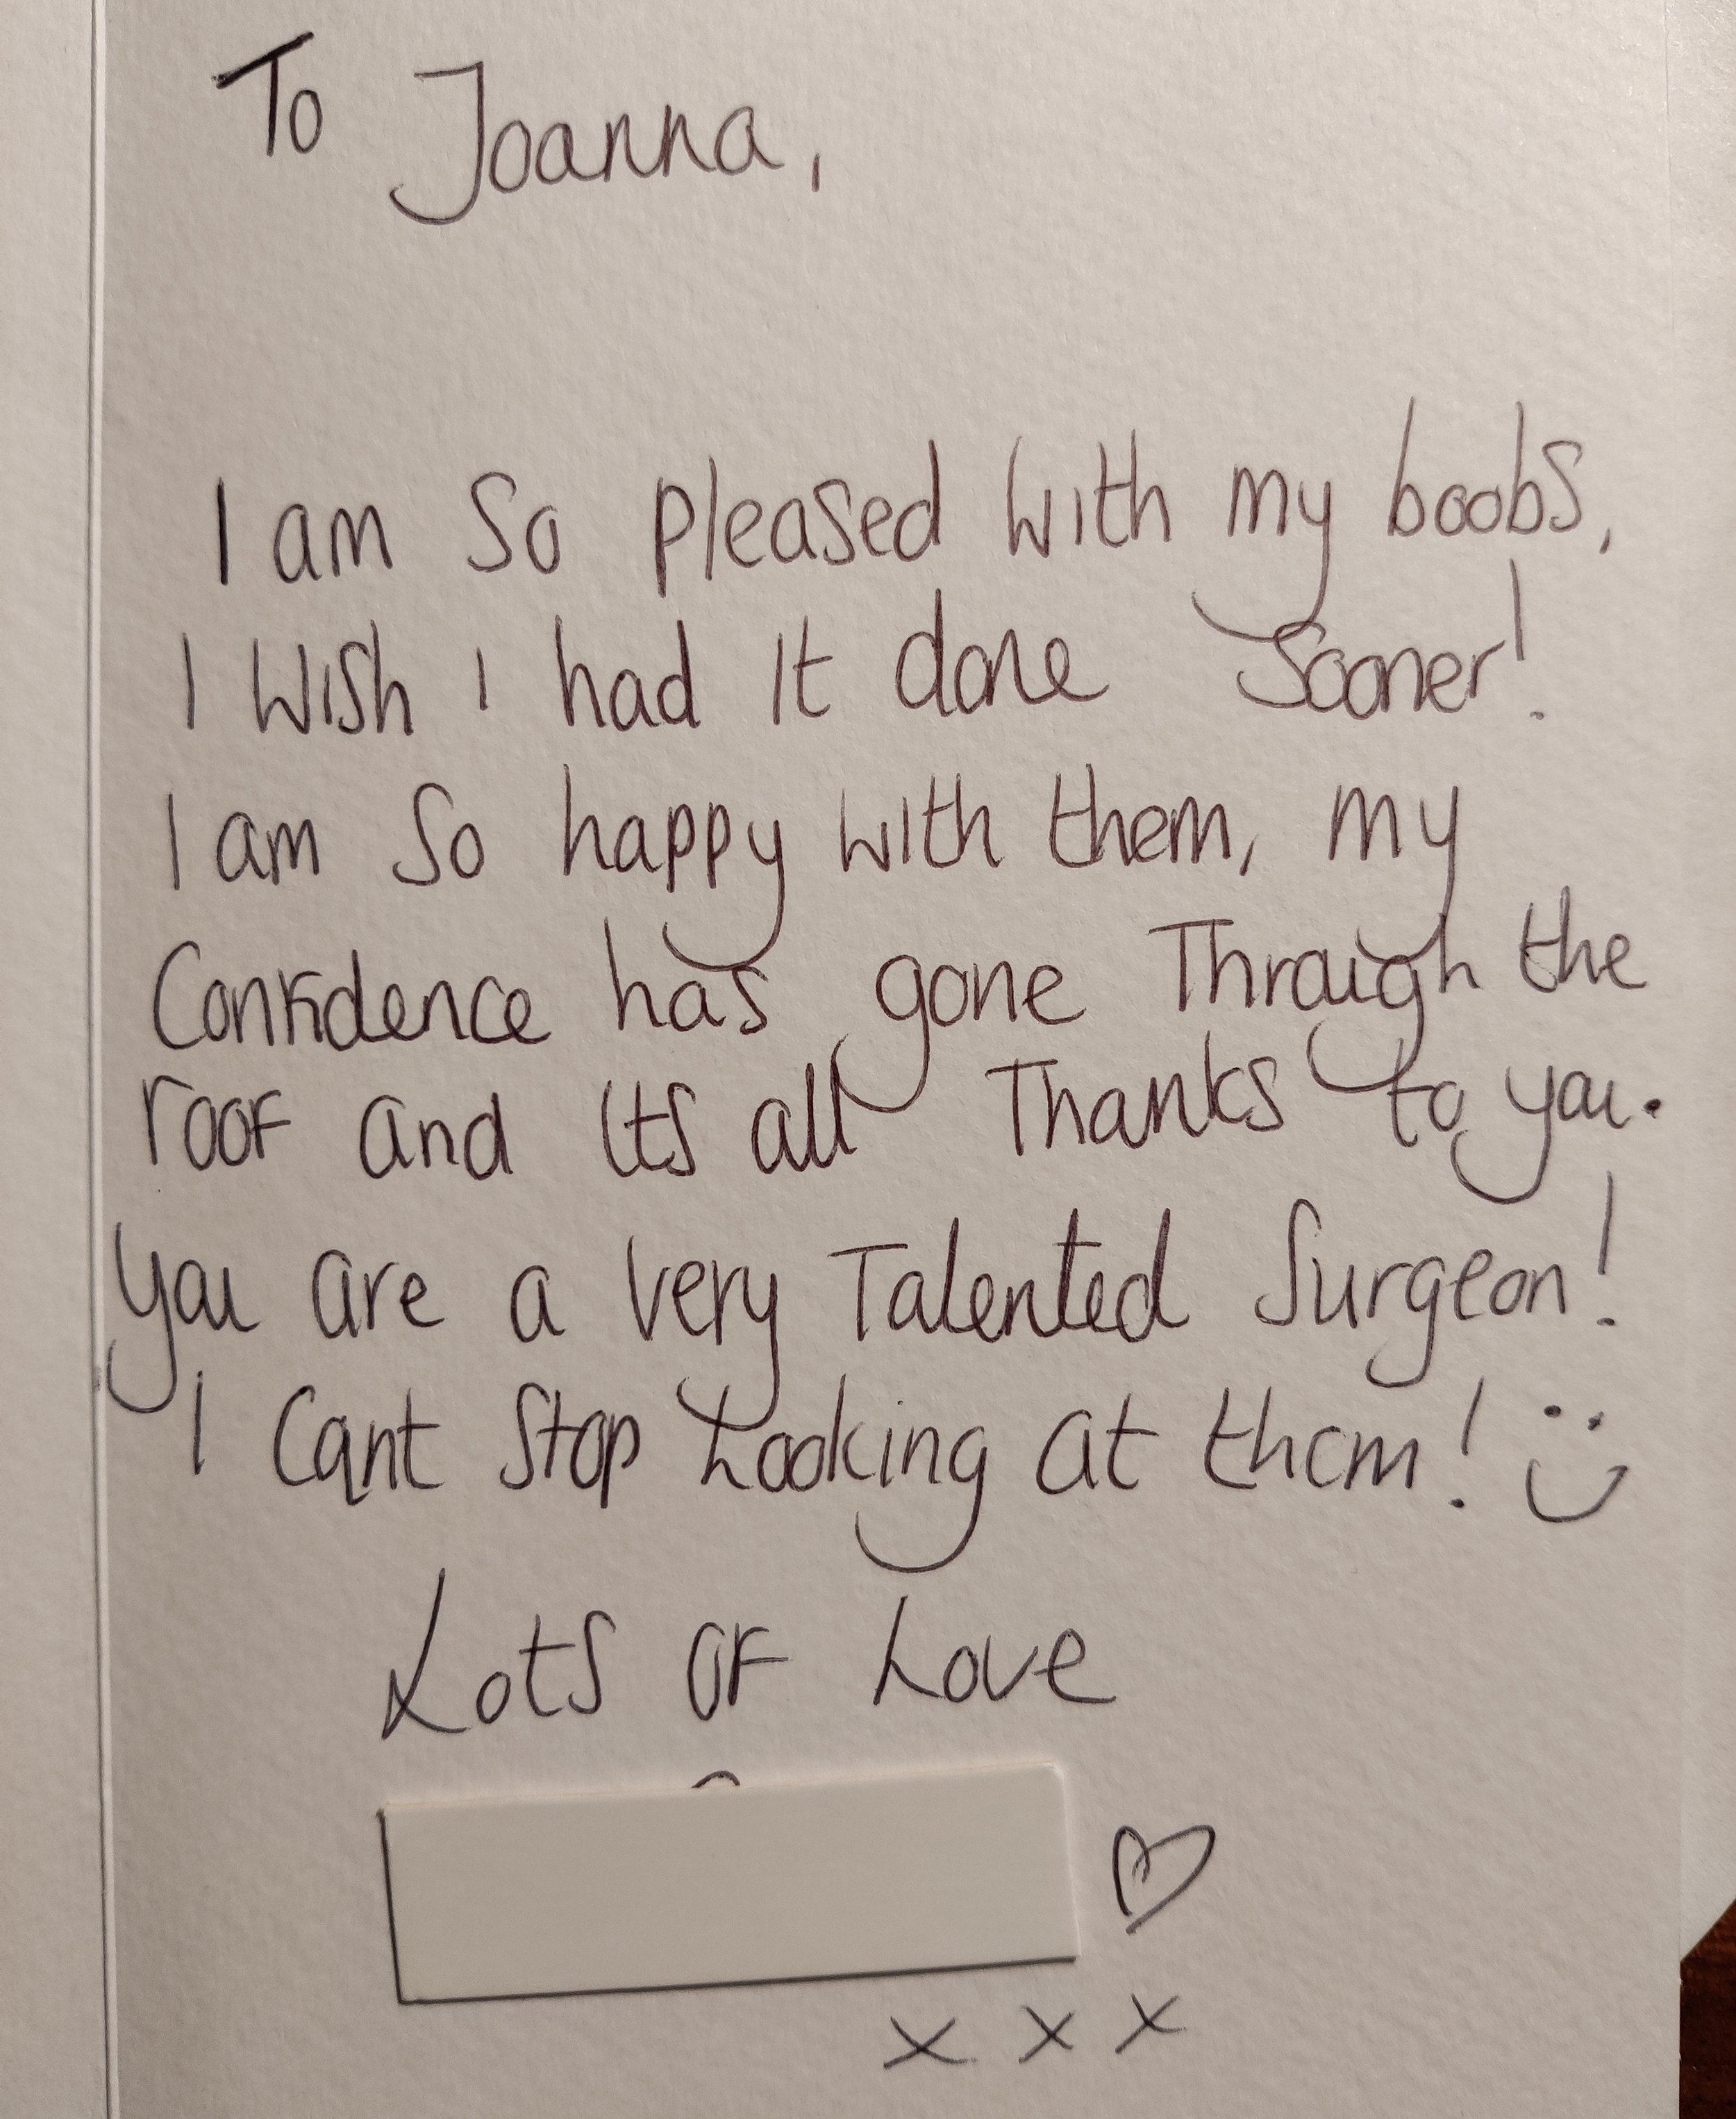 To Joanna,
I am so pleased with my boobs,
I wish I had it done sooner!
I am so happy with them, my
Confidence has gone Through the
roof and its all Thanks to you.
you are a very Talented Surgeon!
I Cant Stop Looking at them! :)
Lots of Love
x x x